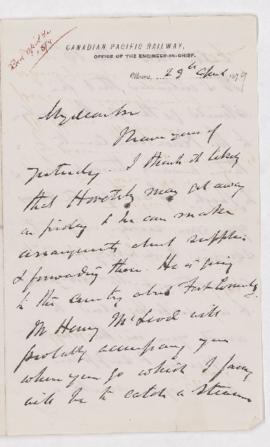 CANADIAN PACIFIC RAILWAY,
OFFICE OF THE ENGINEER-IN-CHIEF.
Ottawa, 29th April 1879
My dear Sir
I have yours of
yesterday. I think it likely
that Horetzky may get away
on friday & he can make
arrangements about supplies
& forwarding them. He is going
to the country about Fort Connolly
Mr Henry McLeod will
probably accompany you
when you go which I fancy
will be to catch a steamer